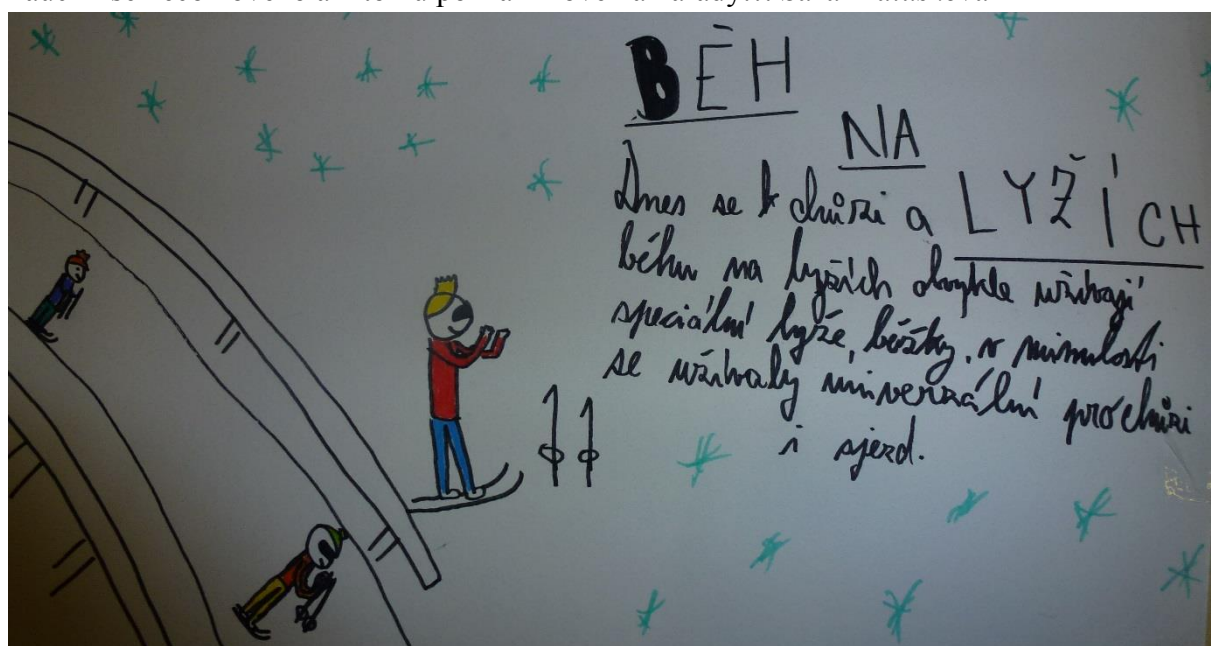 BĚH
NA
LYŽÍCH
Dnes se k chůzi a
běhu na lyžích obvykle užívají
speciální lyže, běžky, v minulosti
se užívaly univerzální pro chůzi
i sjezd.